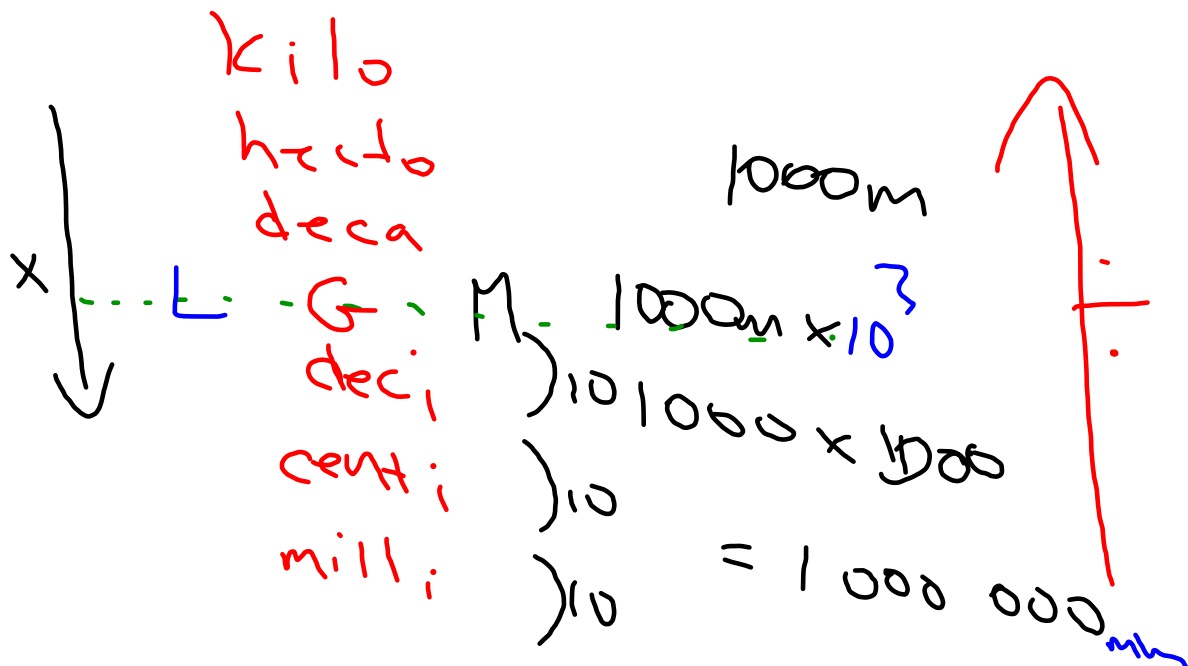 kilo
hecto
1000m
deca
x
L G M 1000m x 10³
deci
)10 1000 x 1000
centi
)10
milli
)10
= 1 000 000mm
÷